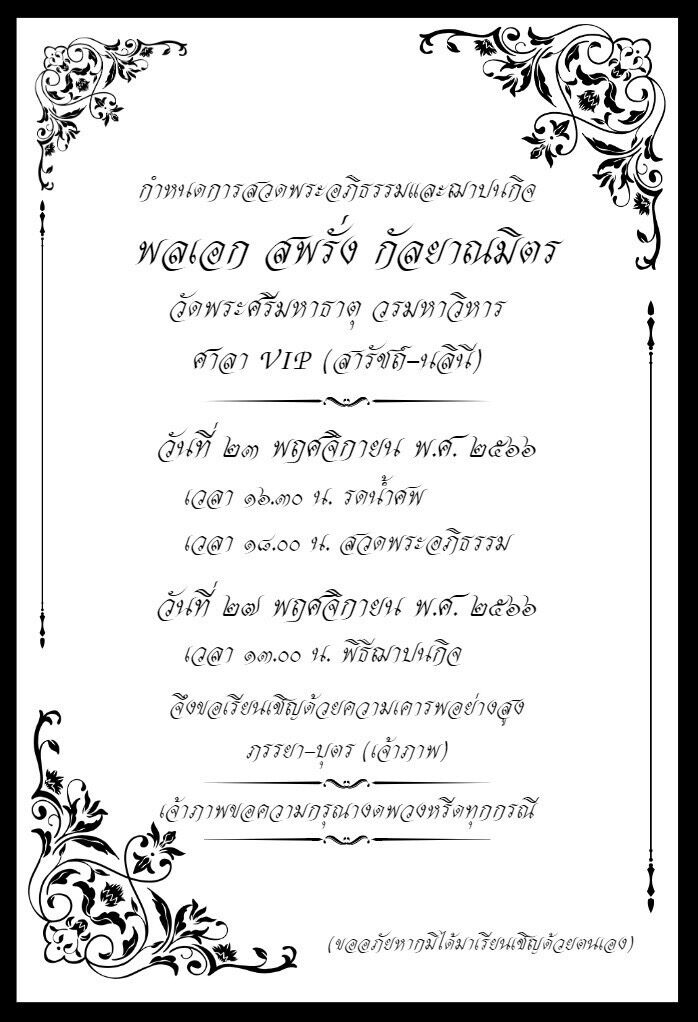 กำหนดการสวดพระอภิธรรมและฌาปนกิจ
พลเอก สพรั่ง กัลยาณมิตร
วัดพระศรีมหาธาตุ วรมหาวิหาร
ศาลา VIP (สารัชถ์-นลินี)
วันที่ ๒๓ พฤศจิกายน พ.ศ. ๒๕๖๖
เวลา ๑๖.๓๐ น. รดน้ำศพ
เวลา ๑๘.๐๐ น. สวดพระอภิธรรม
วันที่ ๒๗ พฤศจิกายน พ.ศ. ๒๕๖๖
เวลา ๑๓.๐๐ น. พิธีฌาปนกิจ
จึงขอเรียนเชิญด้วยความเคารพอย่างสูง
ภรรยา-บุตร (เจ้าภาพ)
เจ้าภาพขอความกรุณางดพวงหรีดทุกกรณี
(ขออภัยหากมิได้มาเรียนเชิญด้วยตนเอง)